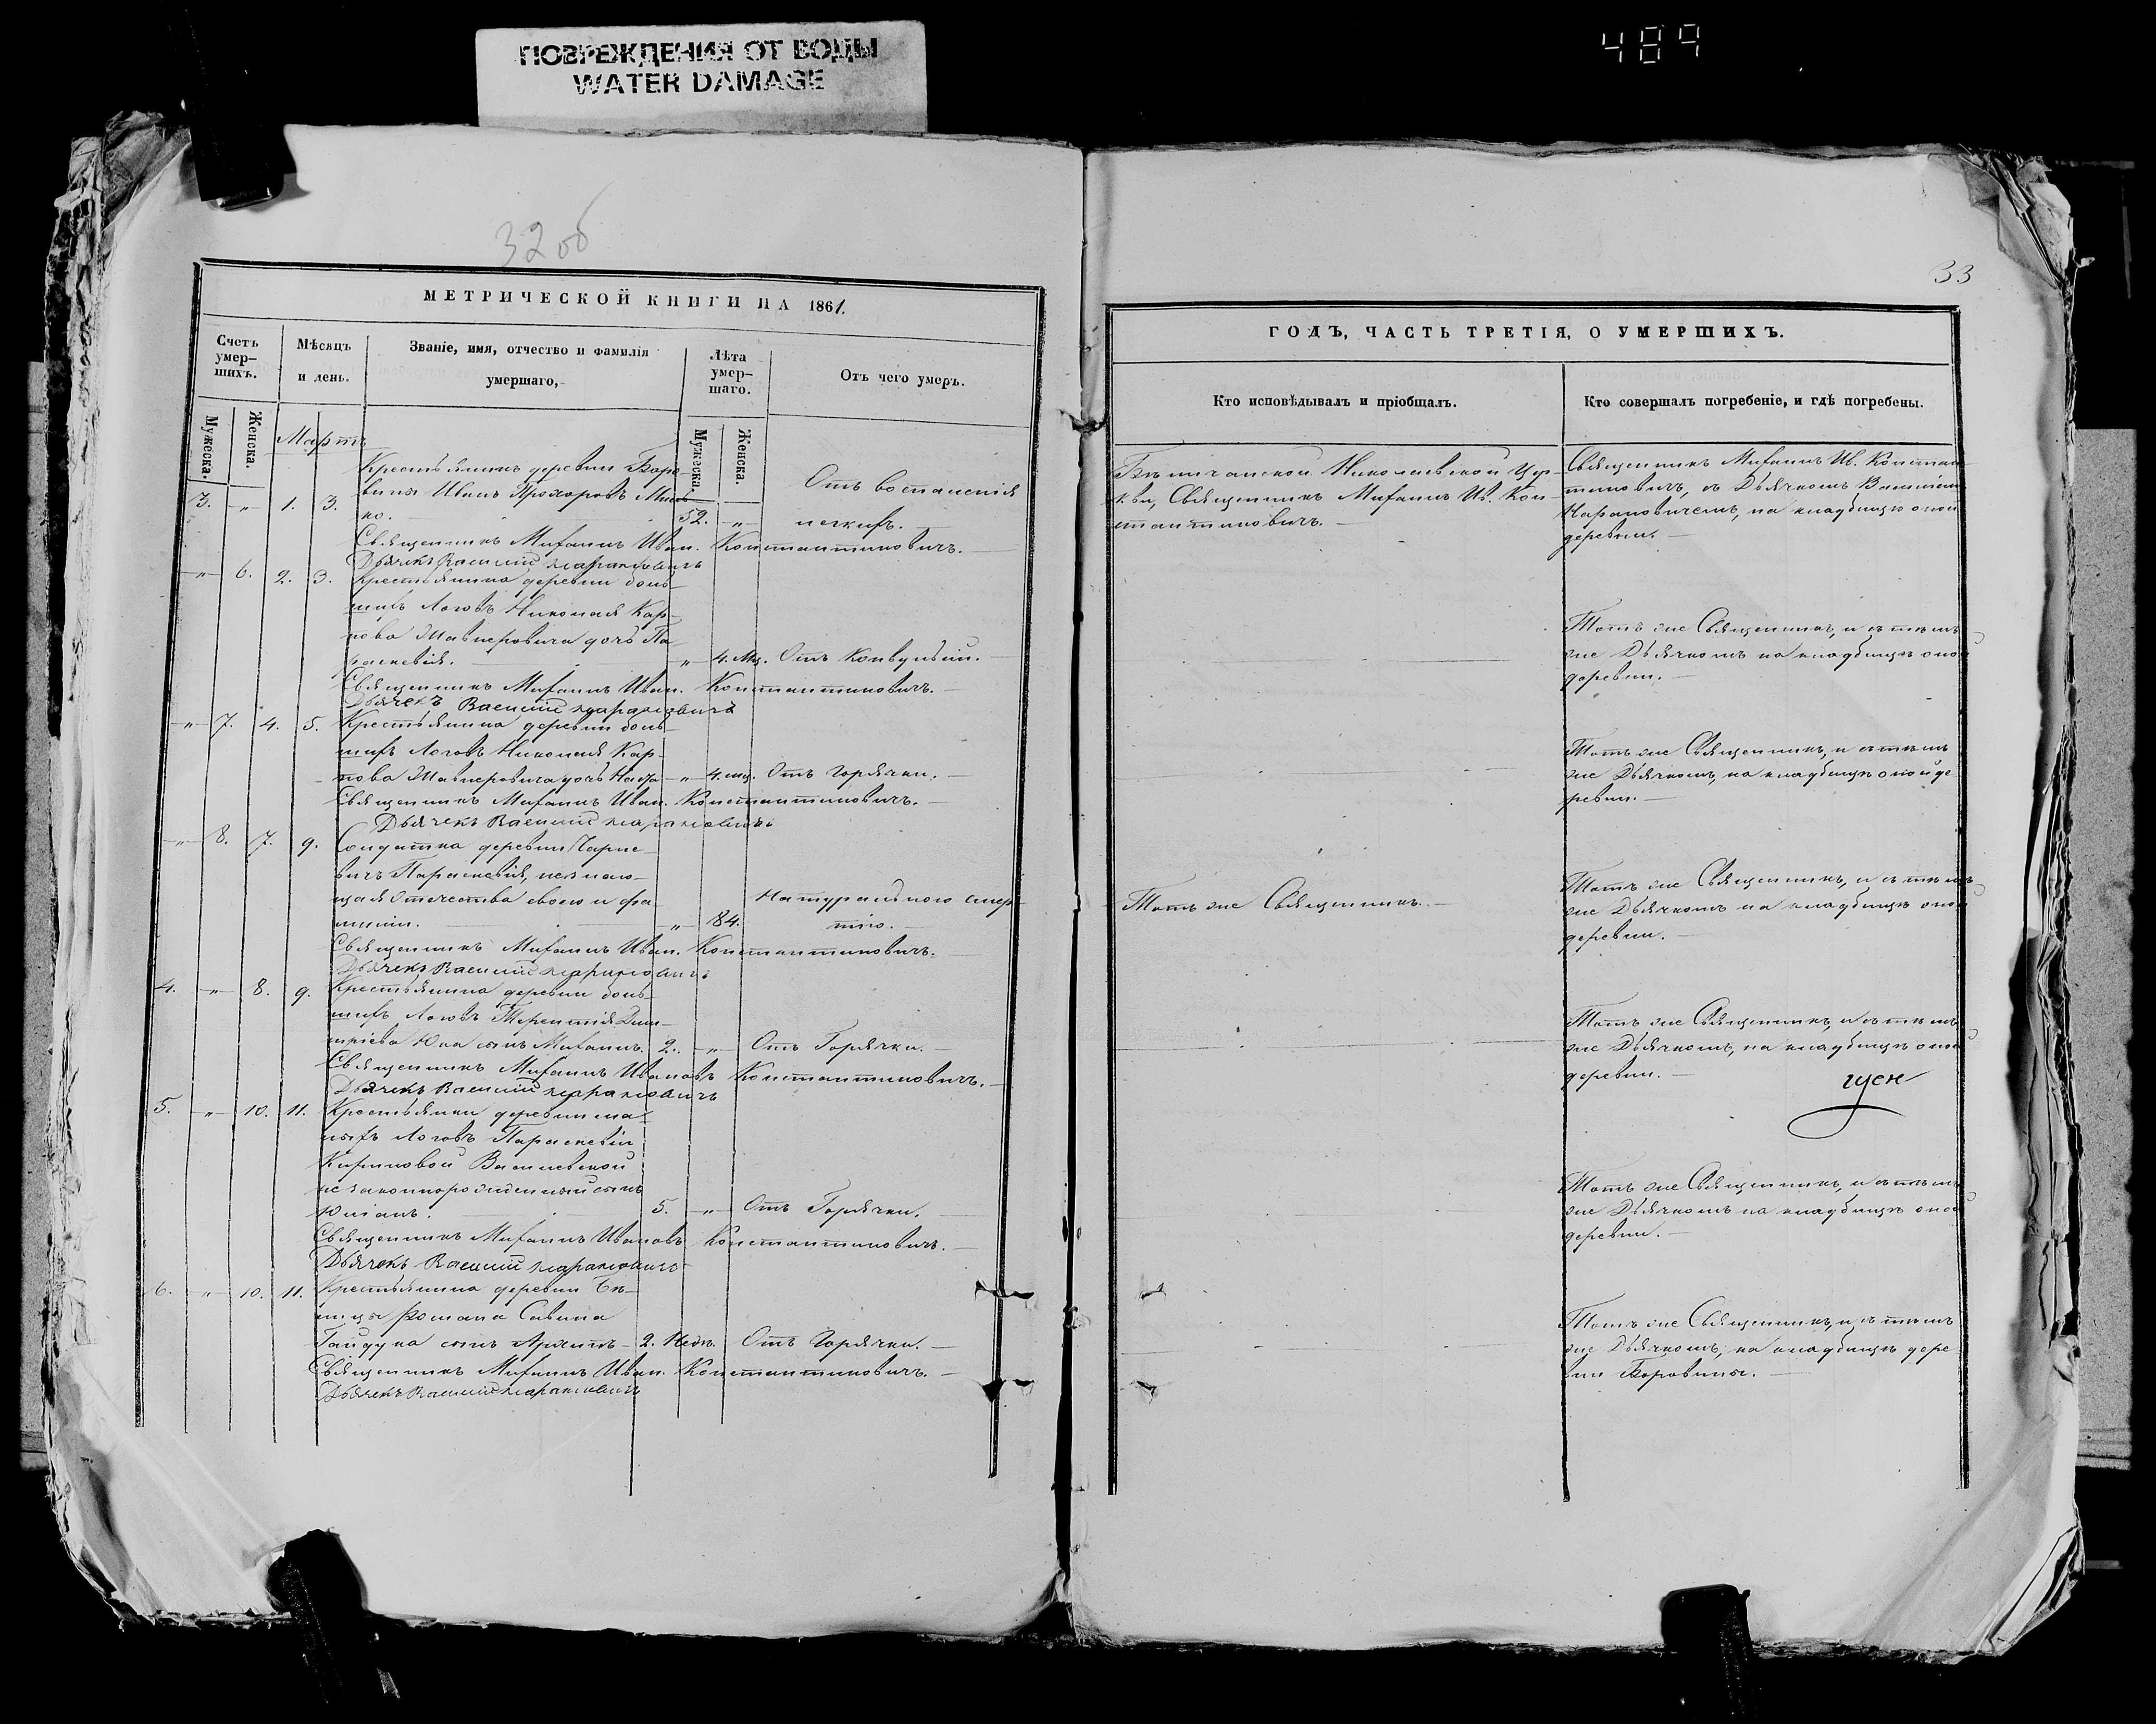 ПОВРЕЖДЕНИЯ ОТ ВОДЫ
WATER DAMAGE
489
32 об
МЕТРИЧЕСКОЙ КНИГИ НА 1861.
Счетъ умер-шихъ.
Мѣсяцъ и день.
Званіе, имя, отчество и фамилія умершаго,
Лѣта умер-шаго.
Отъ чего умеръ.
Мужеска.
Женска.
Мужеска.
Женска.
Мартъ
Крестьянинъ деревни Боро-
вины Иванъ Прохоровъ
3. „ 1. 3.
52. „
Отъ воспаленія
легкихъ.
Священникъ Михаилъ Иван. Константиновичъ.
Дьячекъ Василий
„ 6. 2. 3. Крестьянина деревни боль-
шихъ Логовъ Николая Кар-
пова дочь Па-
раскевія. „ 4. Мц. Отъ Конвульсій.
Священникъ Михаилъ Иван. Константиновичъ.
Дьячекъ Василий
„ 7. 4. 5. Крестьянина деревни боль-
шихъ Логовъ Николая Кар-
пова дочь „ 4. мц. Отъ Горячки.
Священникъ Михаилъ Иван. Константиновичъ.
Дьячекъ Василий
„ 8. 7. 9. Солдатка деревни
Параскевія, незнаю-
щая Отечества своего и фа-
миліи. „ 84. Натуральною смер-
тію.
Священникъ Михаилъ Иван. Константиновичъ.
Дьячекъ Василий
4. „ 8. 9. Крестьянина деревни боль-
шихъ Логовъ Терентія Дми-
тріева Юка сынъ Михаилъ. 2. „ Отъ Горячки.
Священникъ Михаилъ Ивановъ Константиновичъ.
Дьячекъ Василий
5. „ 10. 11. Крестьянки деревни ма-
лыхъ Логовъ Параскевіи
Кириловой Василевской
незаконнорожденный сынъ
Юліанъ. 5. „ Отъ Горячки.
Священникъ Михаилъ Ивановъ Константиновичъ.
Дьячекъ Василий
6. „ 10. 11. Крестьянина деревни Бѣ-
Романа Савина
Гайдука сынъ Архипъ 2. Недѣ. Отъ Горячки.
Священникъ Михаилъ Иван. Константиновичъ.
Дьячекъ Василий
33
ГОДЪ, ЧАСТЬ ТРЕТІЯ, О УМЕРШИХЪ.
Кто исповѣдывалъ и пріобщалъ.
Кто совершалъ погребеніе, и гдѣ погребены.
Николаевской Цер-
кви, Священникъ Михаилъ Ив. Кон-
стантиновичъ.
Священникъ Михаилъ Ив. Констан-
тиновичъ, съ Дьячкомъ
на кладбищѣ оной
деревни.
Тотъ же Священникъ, и съ тѣмъ
же Дьячкомъ на кладбищѣ оной
деревни.
Тотъ же Священникъ, и съ тѣмъ
же Дьячкомъ, на кладбищѣ оной де-
ревни.
Тотъ же Священникъ.
Тотъ же Священникъ, и съ тѣмъ
же Дьячкомъ на кладбищѣ оной
деревни.
Тотъ же Священникъ, и съ тѣмъ
же Дьячкомъ, на кладбищѣ оной
деревни.
Тотъ же Священникъ, и съ тѣмъ
же Дьячкомъ на кладбищѣ оной
деревни.
Тотъ же Священникъ, и съ тѣмъ
же Дьячкомъ, на кладбищѣ дере-
вни Боровины.